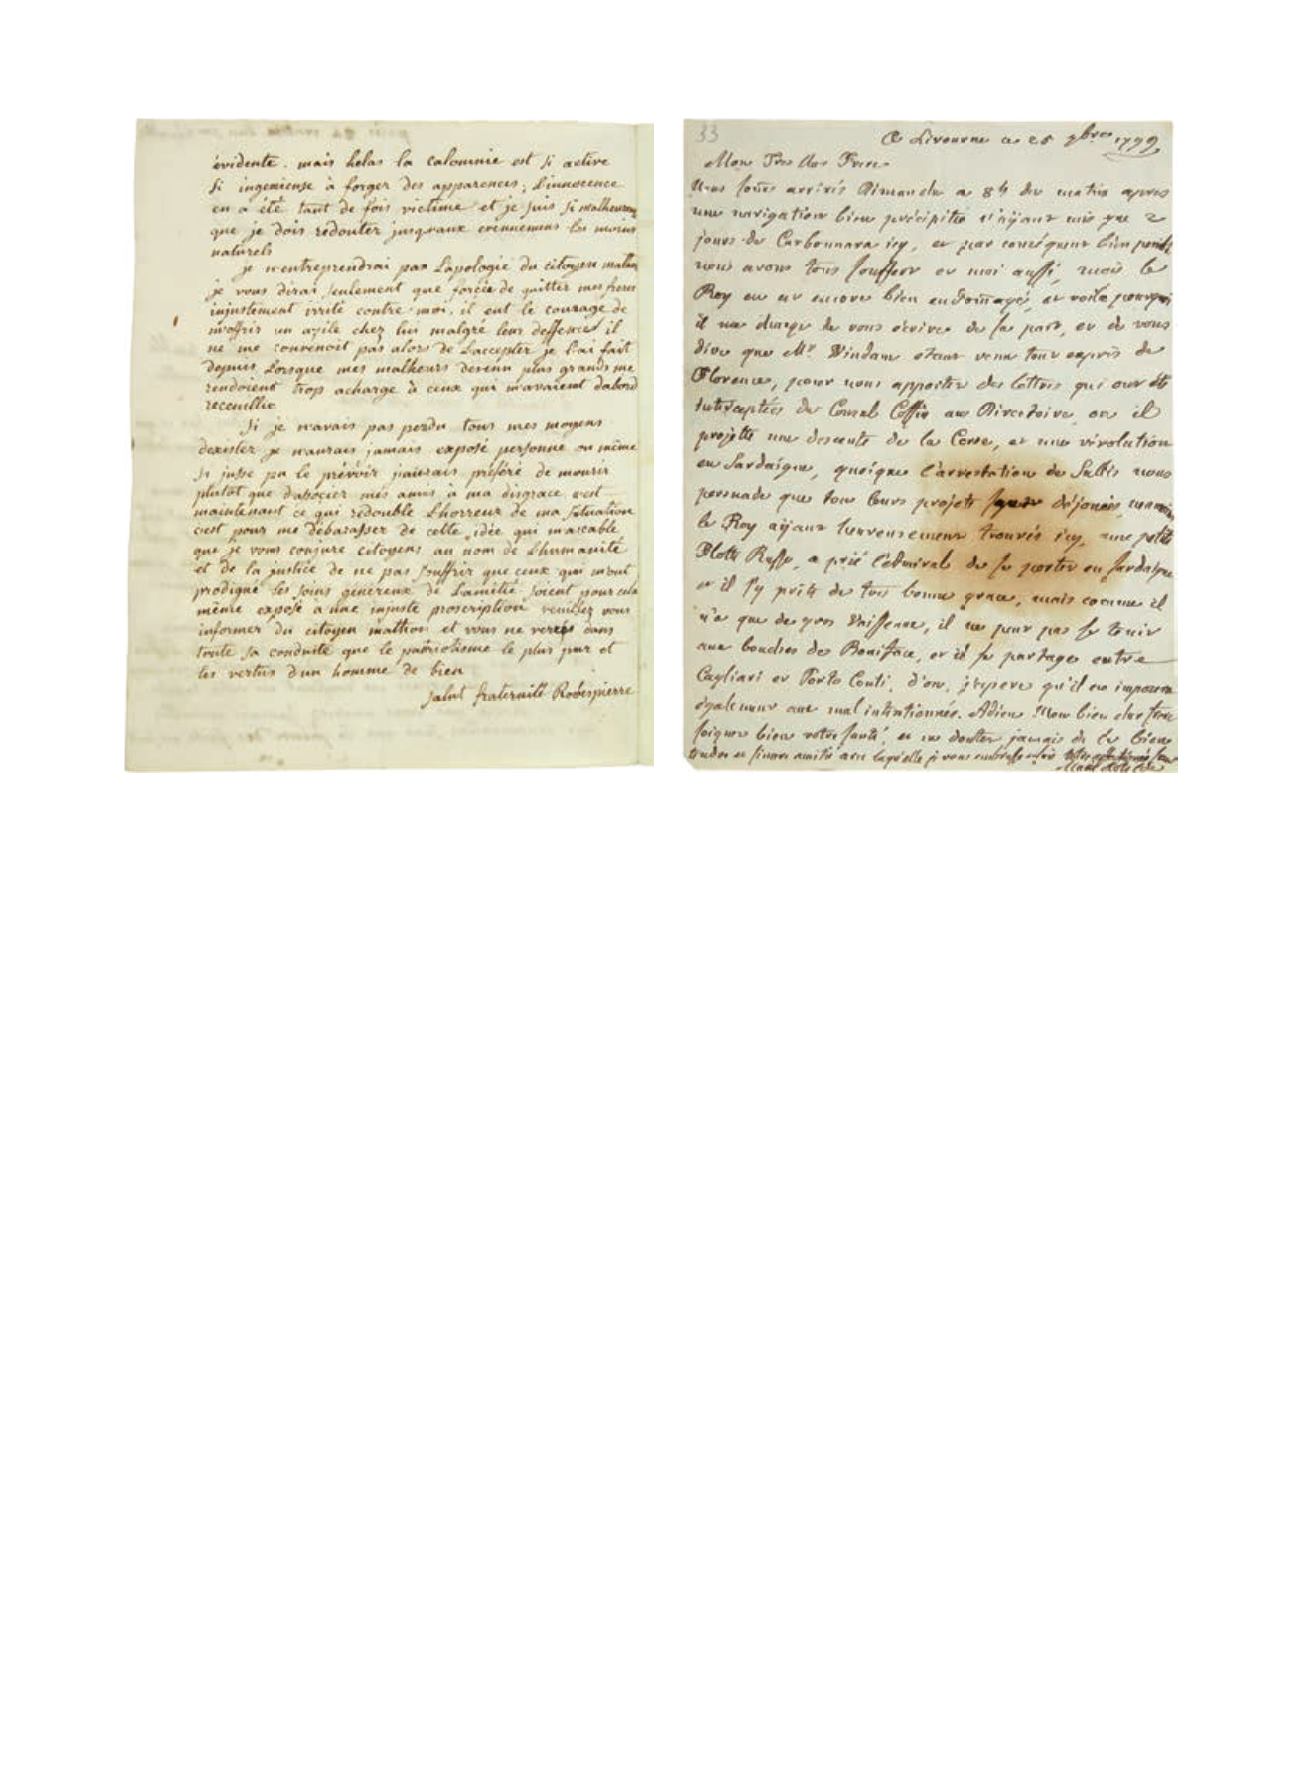 évidente. mais helas la calomnie est si active
si ingenieuse à forger des apparences; l'innocence
en a été tant de fois victime et je suis si malheureuse
que je dois redouter jusqu'aux evennemens les moins
naturels
je n'entreprendrai pas l'apologie du citoyen mathon
je vous dirai seulement que forcée de quitter mes freres
injustement irrité contre moi, il eut le courage de
m'offrir un azile chez lui malgré leur deffence il
ne me convenoit pas alors de l'accepter je l'ai fait
depuis lorsque mes malheurs devenu plus grands me
rendoient trop acharge à ceux qui m'avaient d'abord
receuillie
Si je n'avais pas perdu tous mes moyens
dexister je n'aurais jamais exposé personne ou même
si jusse pu le prévoir jaurais préféré de mourir
plutot que dassocier mes amis à ma disgrace, c'est
maintenant ce qui redouble l'horreur de ma situation
c'est pour me débarasser de cette idée qui m'acable
que je vous conjure citoyens au nom de l'humanité
et de la justice de ne pas souffrir que ceux qui m'ont
prodigué les soins généreux de l'amitié soient pour cela
même exposé a une injuste proscription veuillez vous
informer du citoyen mathon et vous ne verrés dans
toute sa conduite que le patriotisme le plus pur et
les vertus d'un homme de bien
salut fraternité Robespierre
33
Ce Livourne ce 25 7bre 1799
Mon Tres cher Frere
Nous somes arrivés Dimanche a 8h du matin apres
une navigation bien précipitée n'aÿant mis que 2
jours de Carbonnara icy, et par conséquent bien
nous avons tous souffert et moi aussi, mais le
Roy en est encore bien endomagé, et voila pourquoi
il me charge de vous écrire de sa part, et de vous
dire que Mr Windam etant venu tout exprès de
Florence, pour nous apporter des lettres qui ont été
interceptées du Consul Coffin au Directoire, ou il
projette une descente de la Corse, et une révolution
en Sardaigne, quoique l'arrestation de Sultis nous
persuade que tous leurs projets soyent déjoués,
le Roy aÿant heureusement trouvés icy, une petite
Flotte Russe, a prié l'Admiral de se porter en Sardaigne
et il s'y prête de tres bonne grace, mais comme il
n'a que de gros Vaisseaux, il ne peut pas se tenir
aux bouches de Boniface, et il se partage entre
Cagliari et Porto Conti, d'ou, j'espere qu'il en imposera
également aux mal intentionnés. Adieu Mon bien cher frere
soignez bien votre santé, et ne doutez jamais de la bien
tendre et sincere amitié avec laquelle je vous embrasse